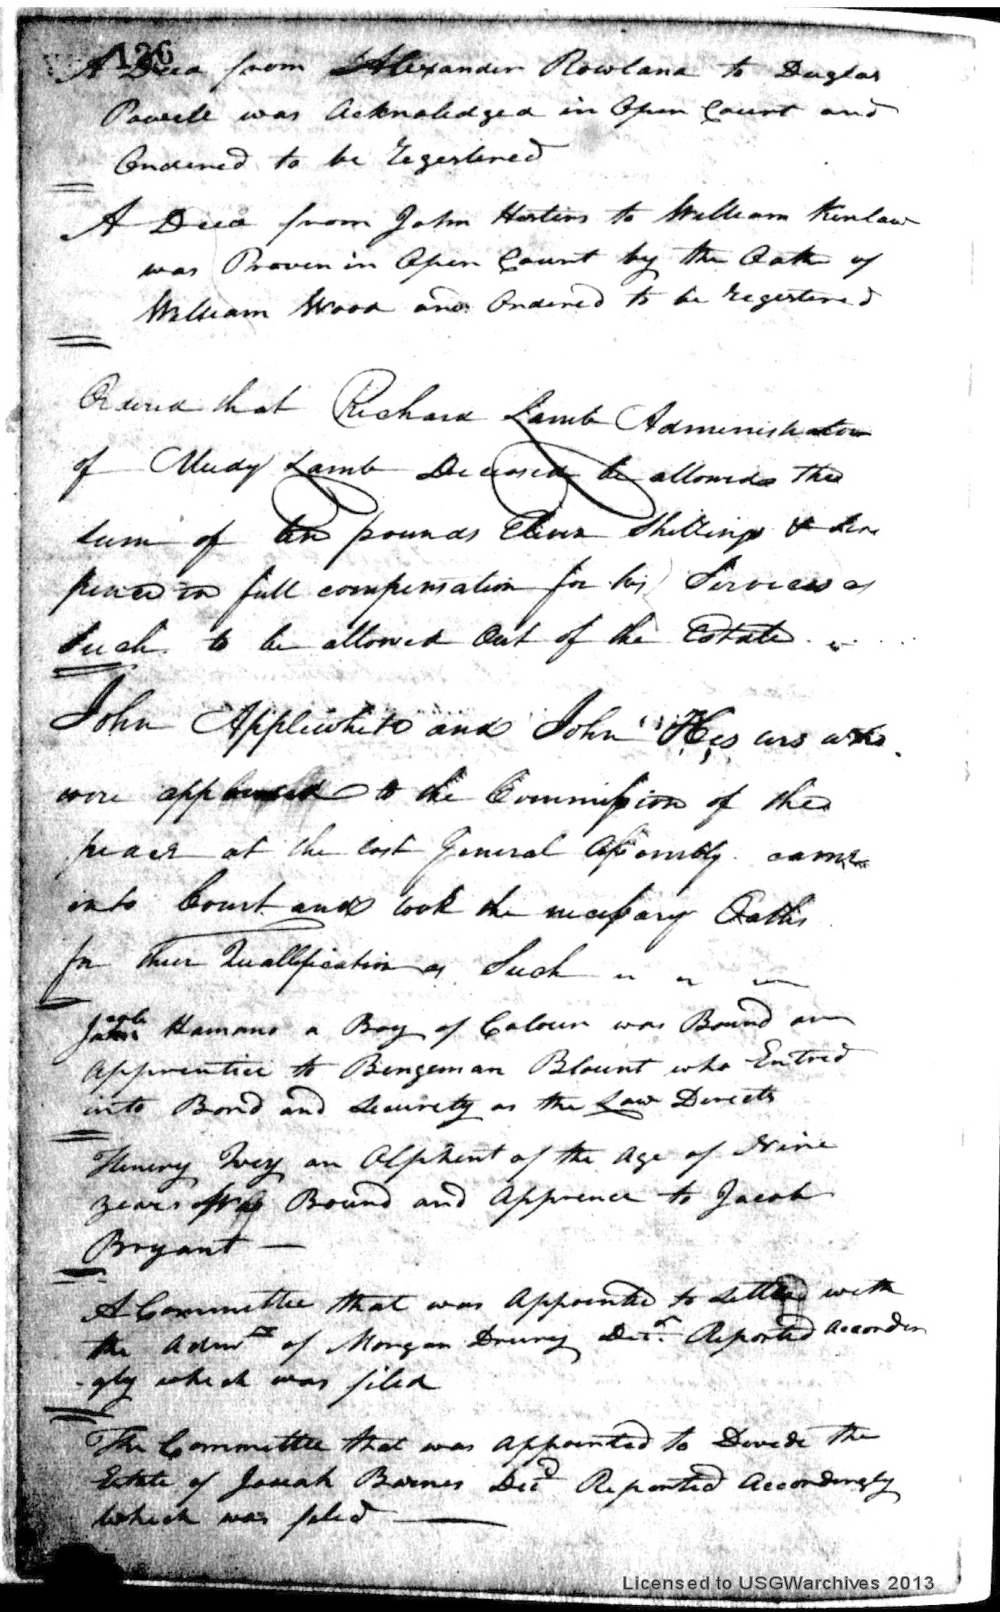 126
A Deed from Alexander Rowland to Duglas
Powell was Acknoledged in Open Court and
Ordered to be Regestered
A Deed from John to William Kinlaw
was Proven in Open Court by the Oath of
William Wood and Ordered to be Regestered
Ordered that Richard Lamb Administrator
of Lamb Deceased be allowed the
sum of ten pounds Eleven Shillings &
pence in full compensation for his Services as
Such to be allowed Out of the Estate
John Applewhite and John who
were appointed to the Commission of the
peace at the last General Assembly came
into Court and took the necessary Oaths
for their Quallification as Such
Jacob Hamans a Boy of Colour was Bound an
Apprentice to Bengeman Blount who Entred
into Bond and Security as the Law Derects
Henery Ivey an Olphent of the Age of Nine
years was Bound and Apprence to Jacob
Bryant
A Committee that was Appointed to Settle with
the Admr of Morgan Drury Decd Reported Accordin
-gly which was filed
The Committee that was Appointed to Devide the
Estate of Josiah Barnes Decd Reported Accordingly
Which was filed
Licensed to USGWarchives 2013